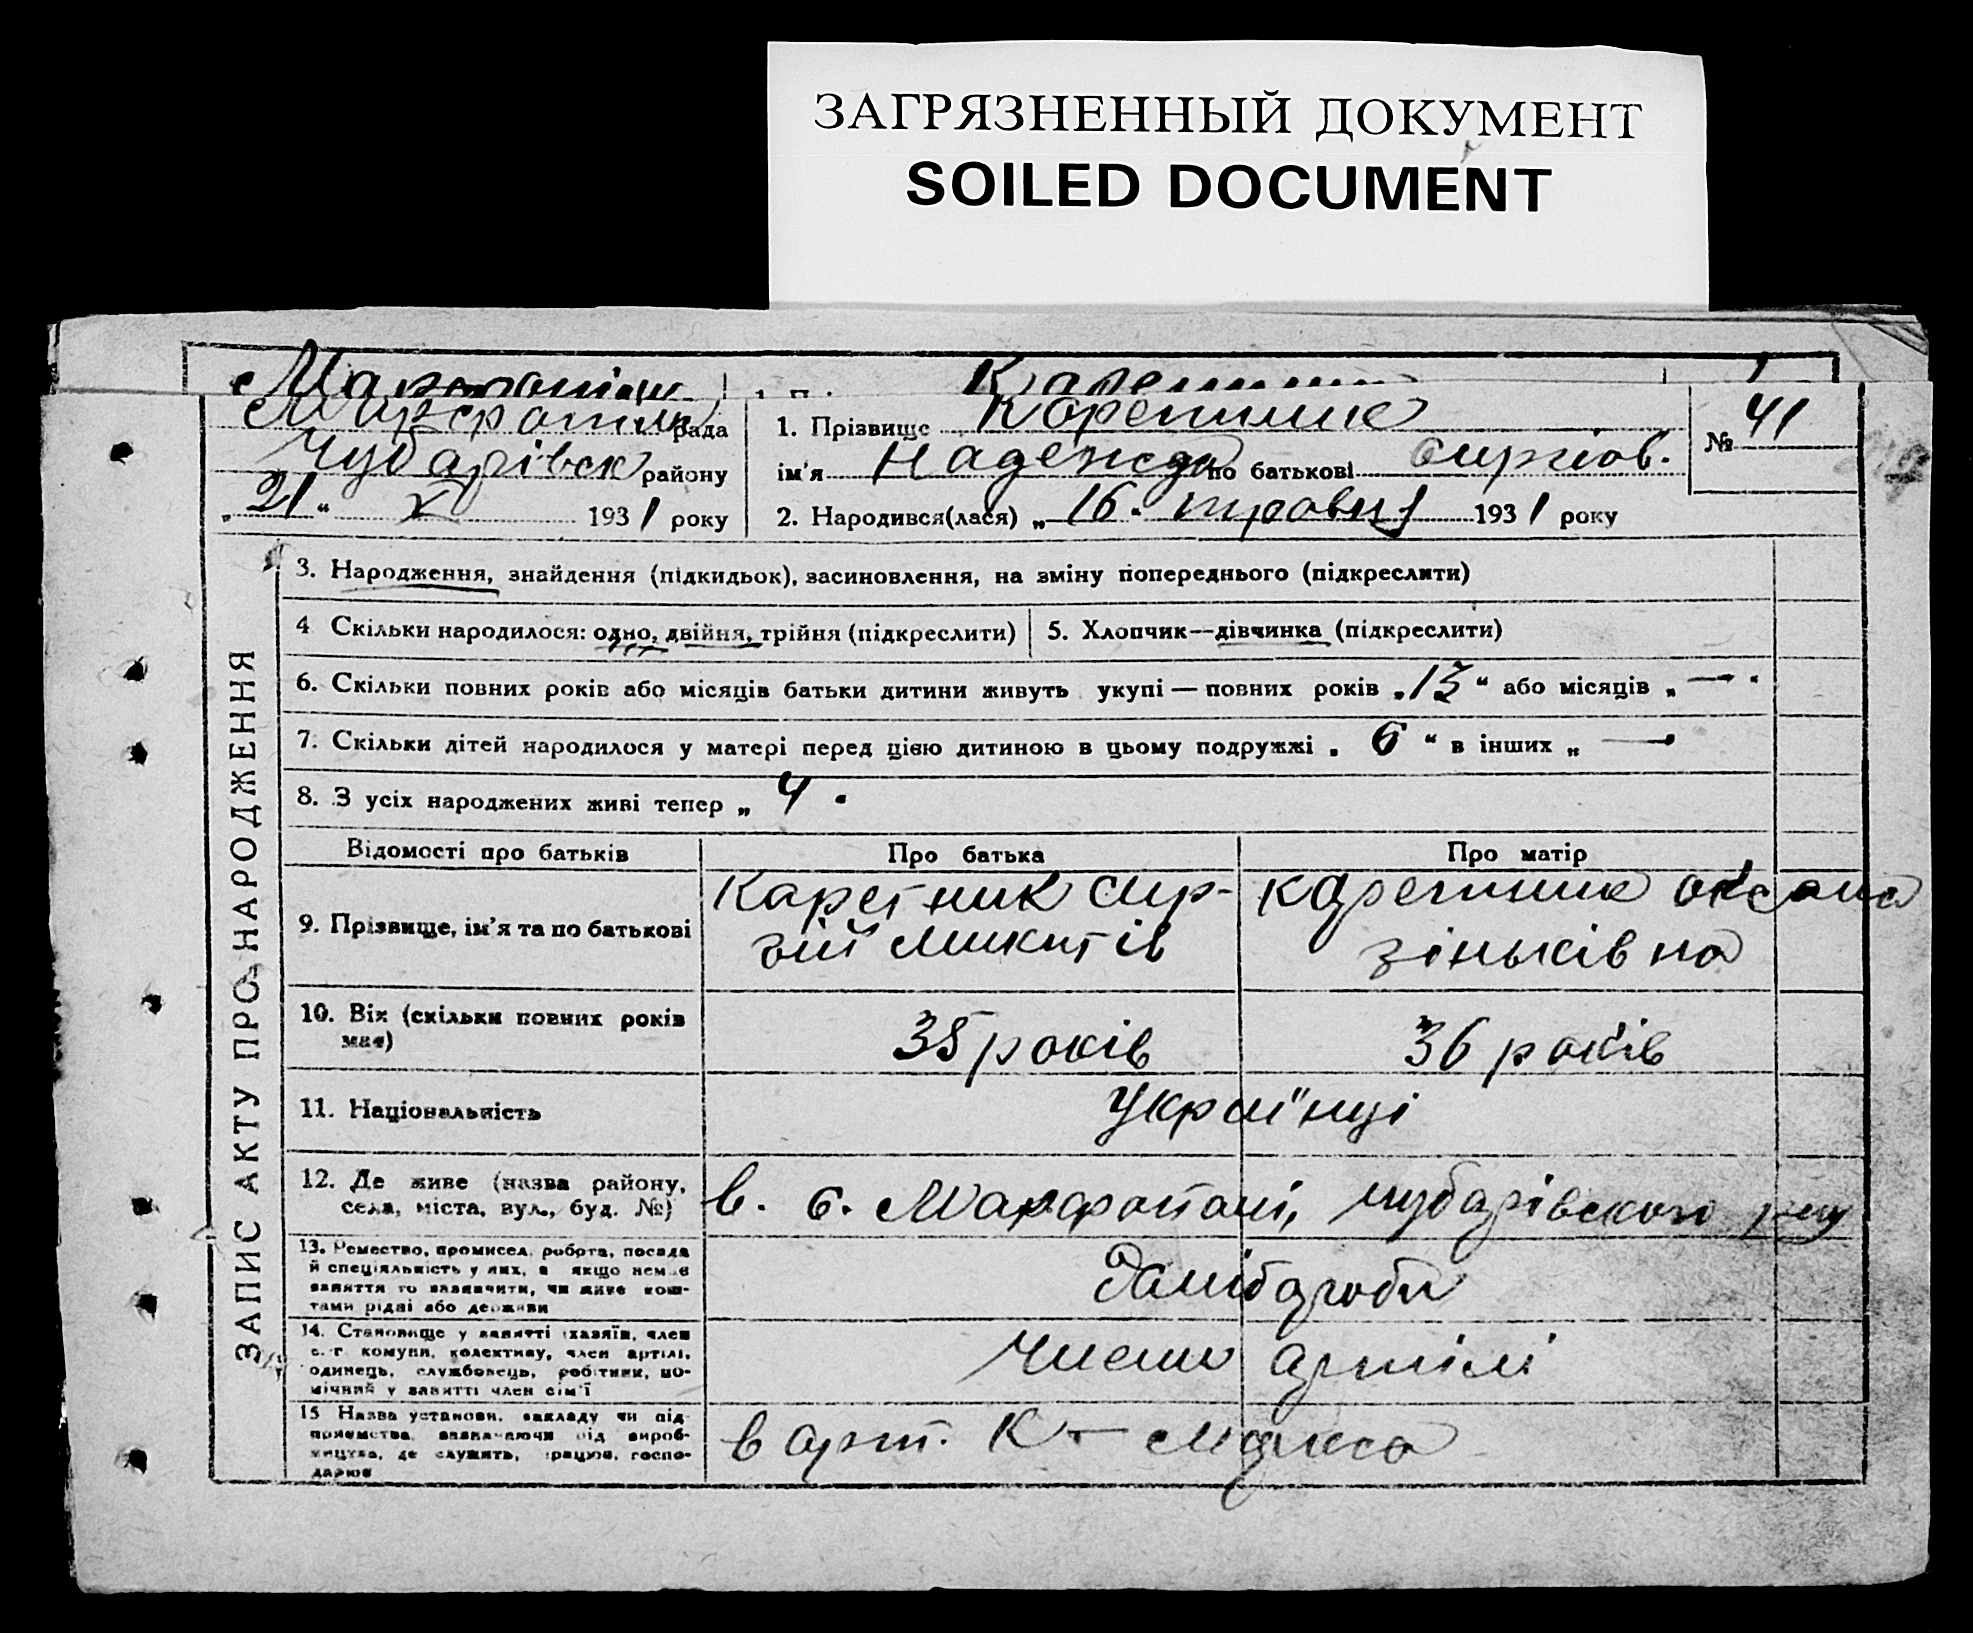 ЗАГРЯЗНЕННЫЙ ДОКУМЕНТ
SOILED DOCUMENT
рада
Чубарівск району
„ 21 “ V 1931 року
1. Прізвище Каретник
ім'я Надежда по батькові Сиргіов.
2. Народився(лася) „ 16. травня 1931 року
№ 41
ЗАПИС АКТУ ПРО НАРОДЖЕННЯ
3. Народження, знайдення (підкидьок), засиновлення, на зміну попереднього (підкреслити)
4 Скільки народилося: одно, двійня, трійня (підкреслити)
5. Хлопчик—дівчинка (підкреслити)
6. Скільки повних років або місяців батьки дитини живуть укупі — повних років „ 13 “ або місяців „ —
7. Скільки дітей народилося у матері перед цією дитиною в цьому подружжі „ 6 “ в інших „ —
8. З усіх народжених живі тепер „ 4
Відомості про батьків Про батька Про матір
9. Прізвище, ім'я та по батькові
Каретник Сир-
гій Микитів
Каретник Оксана
Зіньківна
10. Вік (скільки повних років
має)
35 років
36 років
11. Національність
Українці
12. Де живе (назва району,
села, міста, вул., буд. №)
в. с. Марфополі, Чубарівского р-ну
13. Ремество, промисел, робота, посада
й спеціяльність у них, а якщо немає
заняття то зазначити, чи живе кош-
тами рідні або держави
Хлібороби
14. Становище у занятті (хазяїн, член
с.-г. комуни, колективу, член артілі,
одинець, службовець, робітник, по-
мічний у занятті член сім'ї
Члени артілі
15 Назва установи, закладу чи під
приємства, зазначаючи рід вироб-
ництва, де служить, працює, госпо-
дарює
в арт. К — Маркса